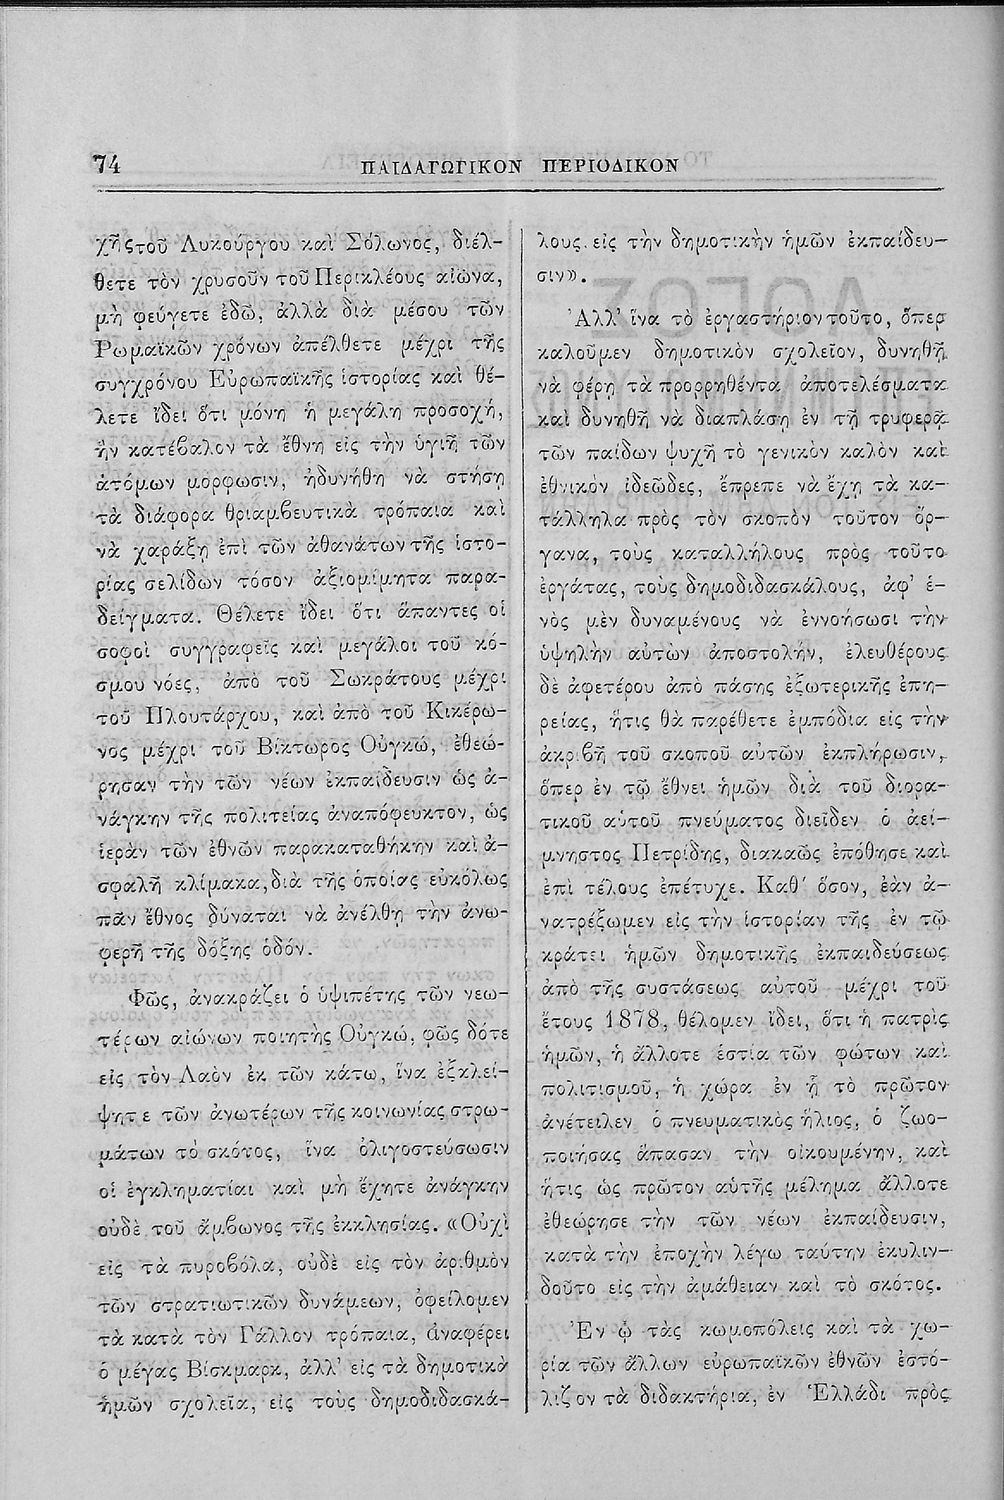 74
ΠΑΙΔΑΓΩΓΙΚΟΝ ΠΕΡΙΟΔΙΚΟΝ
χῆς τοῦ Λυκούργου καὶ Σόλωνος, διέλ-
θετε τὸν χρυσοῦν τοῦ Περικλέους αἰῶνα,
μὴ φεύγετε ἐδῶ, ἀλλὰ διὰ μέσου τῶν
Ῥωμαϊκῶν χρόνων ἀπέλθετε μέχρι τῆς
συγχρόνου Εὐρωπαϊκῆς ἱστορίας καὶ θέ-
λετε ἴδει ὅτι μόνη ἡ μεγάλη προσοχή,
ἣν κατέβαλον τὰ ἔθνη εἰς τὴν ὑγιῆ τῶν
ἀτόμων μορφωσιν, ἠδυνήθη νὰ στήσῃ
τὰ διάφορα θριαμβευτικὰ τρόπαια καὶ
νὰ χαράξῃ ἐπὶ τῶν ἀθανάτων τῆς ἱστο-
ρίας σελίδων τόσον ἀξιομίμητα παρα-
δείγματα. Θέλετε ἴδει ὅτι ἅπαντες οἱ
σοφοὶ συγγραφεῖς καὶ μεγάλοι τοῦ κό-
σμου νόες, ἀπὸ τοῦ Σωκράτους μέχρι
τοῦ Πλουτάρχου, καὶ ἀπὸ τοῦ Κικέρω-
νος μέχρι τοῦ Βίκτωρος Οὑγκώ, ἐθεώ-
ρησαν τὴν τῶν νέων ἐκπαίδευσιν ὡς ἀ-
νάγκην τῆς πολιτείας ἀναπόφευκτον, ὡς
ἱερὰν τῶν ἐθνῶν παρακαταθήκην καὶ ἀ-
σφαλῆ κλίμακα, διὰ τῆς ὁποίας εὐκόλως
πᾶν ἔθνος δύναται νὰ ἀνέλθῃ τὴν ἀνω-
φερῆ τῆς δόξης ὁδόν.
Φῶς, ἀνακράζει ὁ ὑψιπέτης τῶν νεω-
τέρων αἰώνων ποιητὴς Οὑγκώ, φῶς δότε
εἰς τὸν Λαὸν ἐκ τῶν κάτω, ἵνα ἐξαλεί-
ψητε τῶν ἀνωτέρων τῆς κοινωνίας στρω-
μάτων τὸ σκότος, ἵνα ὀλιγοστεύσωσιν
οἱ ἐγκληματίαι καὶ μὴ ἔχητε ἀνάγκην
οὐδὲ τοῦ ἄμβωνος τῆς ἐκκλησίας. «Οὐχὶ
εἰς τὰ πυροβόλα, οὐδὲ εἰς τὸν ἀριθμὸν
τῶν στρατιωτικῶν δυνάμεων, ὀφείλομεν
τὰ κατὰ τὸν Γάλλον τρόπαια, ἀναφέρει
ὁ μέγας Βίσκμαρκ, ἀλλ' εἰς τὰ δημοτικὰ
ἡμῶν σχολεῖα, εἰς τοὺς δημοδιδασκά-
λους εἰς τὴν δημοτικὴν ἡμῶν ἐκπαίδευ-
σιν».
Ἀλλ' ἵνα τὸ ἐργαστήριον τοῦτο, ὅπερ
καλοῦμεν δημοτικὸν σχολεῖον, δυνηθῇ
νὰ φέρῃ τὰ προρρηθέντα ἀποτελέσματα
καὶ δυνηθῇ νὰ διαπλάσῃ ἐν τῇ τρυφερᾷ
τῶν παίδων ψυχῇ τὸ γενικὸν καλὸν καὶ
ἐθνικὸν ἰδεῶδες, ἔπρεπε νὰ ἔχῃ τὰ κα-
τάλληλα πρὸς τὸν σκοπὸν τοῦτον ὄρ-
γανα, τοὺς καταλλήλους πρὸς τοῦτο
ἐργάτας, τοὺς δημοδιδασκάλους, ἀφ' ἑ-
νὸς μὲν δυναμένους νὰ ἐννοήσωσι τὴν
ὑψηλὴν αὐτῶν ἀποστολήν, ἐλευθέρους
δὲ ἀφετέρου ἀπὸ πάσης ἐξωτερικῆς ἐπη-
ρείας, ἥτις θὰ παρέθετε ἐμπόδια εἰς τὴν
ἀκριβῆ τοῦ σκοποῦ αὐτῶν ἐκπλήρωσιν,
ὅπερ ἐν τῷ ἔθνει ἡμῶν διὰ τοῦ διορα-
τικοῦ αὑτοῦ πνεύματος διεῖδεν ὁ ἀεί-
μνηστος Πετρίδης, διακαῶς ἐπόθησε καὶ
ἐπὶ τέλους ἐπέτυχε. Καθ' ὅσον, ἐὰν ἀ-
νατρέξωμεν εἰς τὴν ἱστορίαν τῆς ἐν τῷ
κράτει ἡμῶν δημοτικῆς ἐκπαιδεύσεως
ἀπὸ τῆς συστάσεως αὐτοῦ μέχρι τοῦ
ἔτους 1878, θέλομεν ἴδει, ὅτι ἡ πατρὶς
ἡμῶν, ἡ ἄλλοτε ἑστία τῶν φώτων καὶ
πολιτισμοῦ, ἡ χώρα ἐν ᾗ τὸ πρῶτον
ἀνέτειλεν ὁ πνευματικὸς ἥλιος, ὁ ζωο-
ποιήσας ἅπασαν τὴν οἰκουμένην, καὶ
ἥτις ὡς πρῶτον αὑτῆς μέλημα ἄλλοτε
ἐθεώρησε τὴν τῶν νέων ἐκπαίδευσιν,
κατὰ τὴν ἐποχὴν λέγω ταύτην ἐκυλιν-
δοῦτο εἰς τὴν ἀμάθειαν καὶ τὸ σκότος.
Ἐν ᾧ τὰς κωμοπόλεις καὶ τὰ χω-
ρία τῶν ἄλλων εὐρωπαϊκῶν ἐθνῶν ἐστό-
λιζον τὰ διδακτήρια, ἐν Ἑλλάδι πρὸς